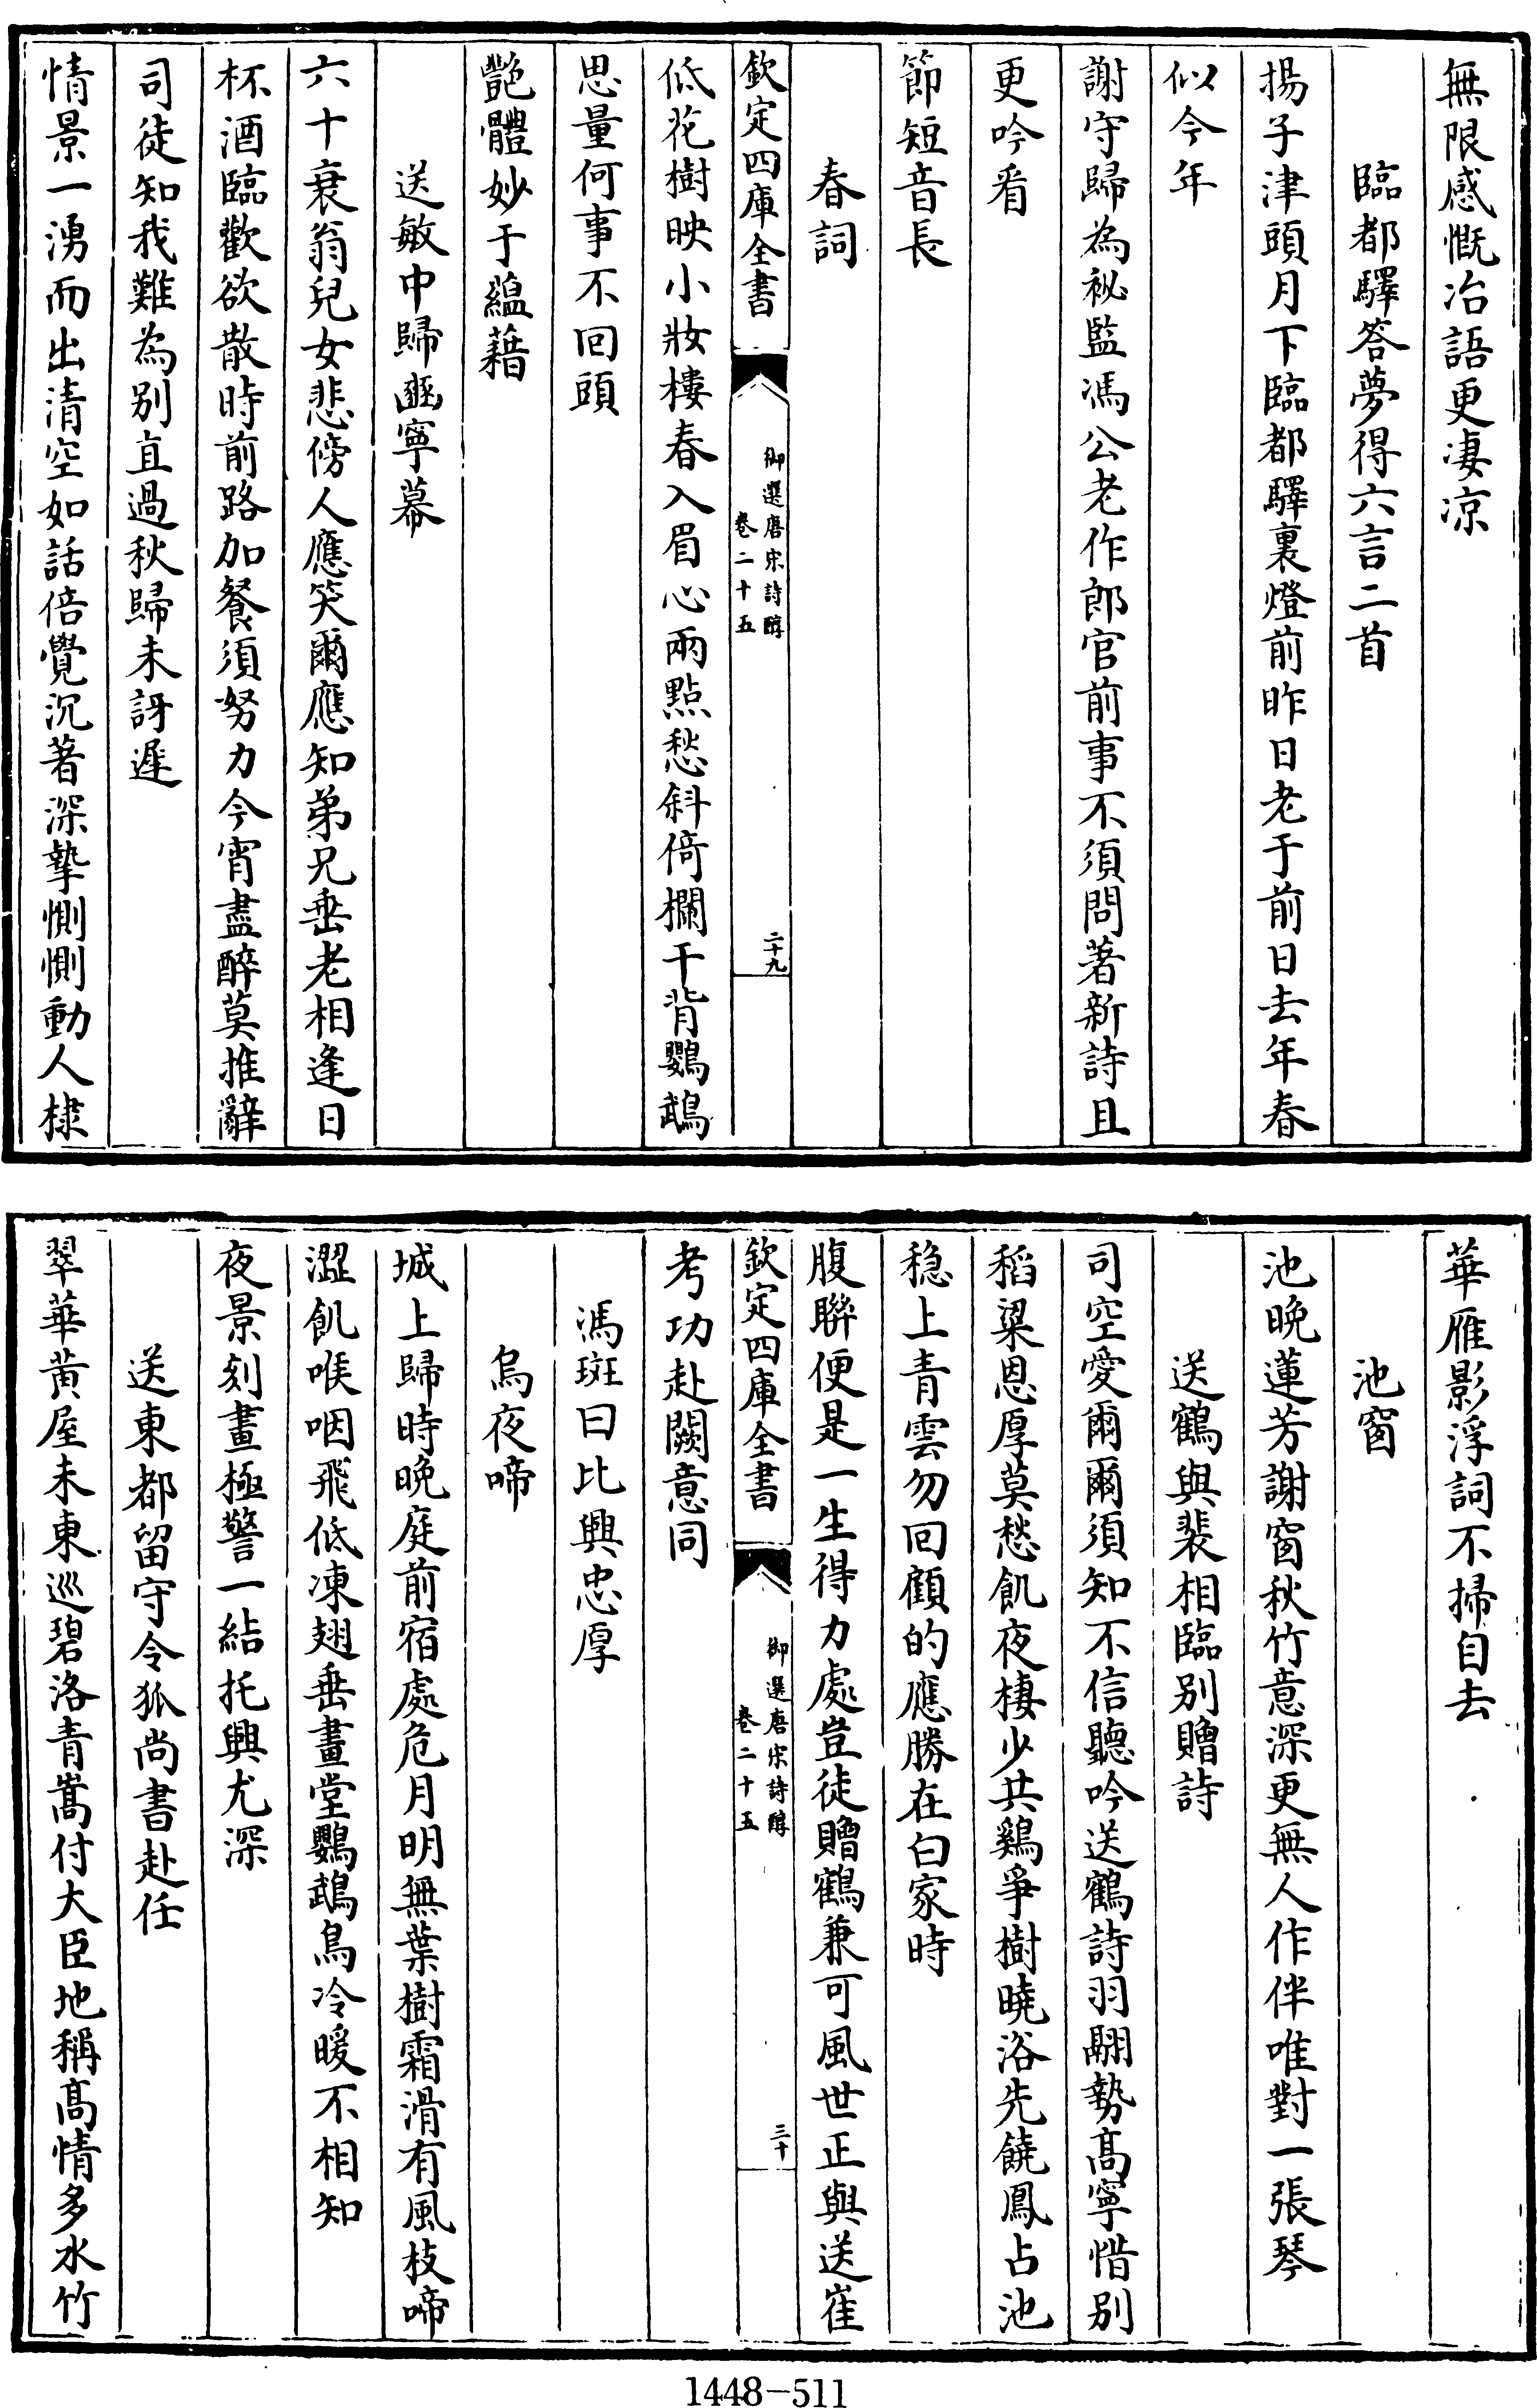 無限感慨冶語更淒涼
臨都驛答夢得六言二首
揚子津頭月下臨都驛裏燈前昨日老于前日去年春
似今年
謝守歸為祕監馮公老作郎官前事不須問著新詩且
更吟看
節短音長
春詞
欽定四庫全書
御選唐宋詩醇
卷二十五
二十九
低花樹映小妝樓春入眉心兩點愁斜倚欄干背鸚鵡
思量何事不回頭
艷體妙于蘊藉
送敏中歸豳寧幕
六十衰翁兒女悲傍人應笑爾應知弟兄垂老相逢日
杯酒臨歡欲散時前路加餐須努力今宵盡醉莫推辭
司徒知我難為別直過秋歸未訝遲
情景一湧而出清空如話倍覺沉著深摯惻惻動人棣
華雁影浮詞不掃自去
池窗
池晚蓮芳謝窗秋竹意深更無人作伴唯對一張琴
送鶴與裴相臨別贈詩
司空愛爾爾須知不信聽吟送鶴詩羽翮勢高寧惜別
稻粱恩厚莫愁飢夜棲少共鷄爭樹曉浴先饒鳳占池
穏上青雲勿回顧的應勝在白家時
腹聯便是一生得力處豈徒贈鶴兼可風世正與送崔
欽定四庫全書
御選唐宋詩醇
卷二十五
三十
考功赴闕意同
馮斑曰比興忠厚
烏夜啼
城上歸時晚庭前宿處危月明無葉樹霜滑有風枝啼
澀飢喉咽飛低凍翅垂畫堂鸚鵡鳥冷暖不相知
夜景刻畫極警一結托興尤深
送東都留守令狐尚書赴任
翠華黃屋未東巡碧洛青嵩付大臣地稱高情多水竹
1448-511